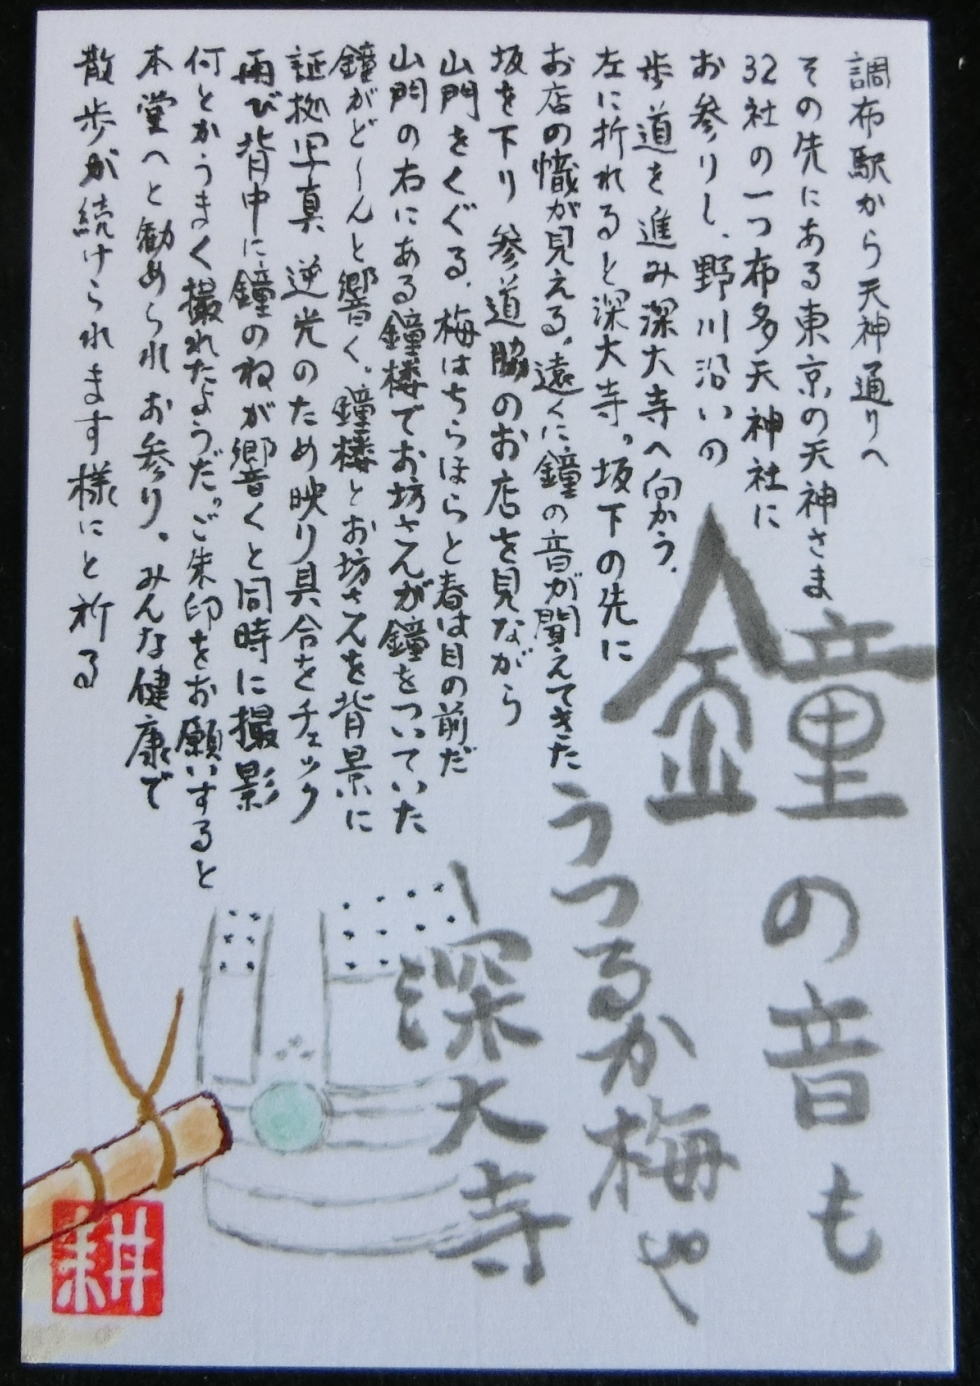 調布駅から天神通りへ
その先にある東京の天神さま
32社の一つ布多天神社に
お参りし、野川沿いの
歩道を進み深大寺へ向かう。
左に折れると深大寺。坂下の先に
お店の幟が見える。遠くに鐘の音が聞えてきた
坂を下り参道脇のお店を見ながら
山門をくぐる、梅はちらほらと春は目の前だ
山門の右にある鐘楼でお坊さんが鐘をついていた
鐘がど〜んと響く。鐘楼とお坊さんを背景に
証拠写真 逆光のため映り具合をチェック
再び背中に鐘のねが響くと同時に撮影
何とかうまく撮れたようだ。ご朱印をお願いすると
本堂へと勧められお参り。みんな健康で
散歩が続けられます様にと祈る
鐘の音も
うつるか梅や
深大寺
耕